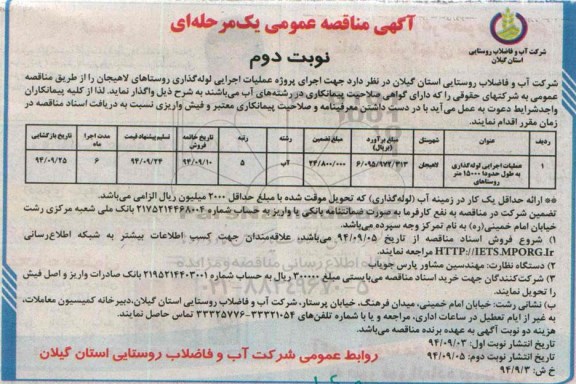 آگهی مناقصه عمومی یک‌مرحله‌ای
نوبت دوم
شرکت آب و فاضلاب روستایی
استان گیلان
شرکت آب و فاضلاب روستایی استان گیلان در نظر دارد جهت اجرای پروژه عملیات اجرایی لوله‌گذاری روستاهای لاهیجان را از طریق مناقصه
عمومی به شرکتهای حقوقی را که دارای گواهی صلاحیت پیمانکاری در رشته‌های آب می‌باشند به شرح ذیل واگذار نماید. لذا از کلیه پیمانکاران
واجدشرایط دعوت به عمل می‌آید با در دست داشتن معرفینامه و صلاحیت پیمانکاری معتبر و فیش واریزی نسبت به دریافت اسناد مناقصه در
زمان مقرر اقدام نمایند.
ردیف عنوان شهرستان مبلغ برآورد (ریال) مبلغ تضمین رشته رتبه تاریخ خاتمه فروش تسلیم پیشنهاد قیمت مدت اجرا ماه تاریخ بازگشایی
۱ عملیات اجرایی لوله گذاری به طول حدودا ۱۵۰۰۰ متر روستاهای لاهیجان ۶/۰۹۵/۹۷۴/۳۱۳ ۲۴/۸۰۰/۰۰۰ آب ۵ ۹۴/۰۹/۱۰ ۹۴/۰۹/۲۴ ۶ ۹۴/۰۹/۲۵
** ارائه حداقل یک کار در زمینه آب (لوله‌گذاری) که تحویل موقت شده با مبلغ حداقل ۲۰۰۰ میلیون ریال الزامی می‌باشد.
تضمین شرکت در مناقصه به نفع کارفرما به صورت ضمانتنامه بانکی یا واریز به حساب شماره ۲۱۷۵۲۱۴۴۶۸۰۰۶ بانک ملی شعبه مرکزی رشت
خیابان امام خمینی(ره) به نام تمرکز وجه سپرده می‌باشد.
۱) شروع فروش اسناد مناقصه از تاریخ ۹۴/۰۹/۰۵ می‌باشد، علاقه‌مندان جهت کسب اطلاعات بیشتر به شبکه اطلاع‌رسانی
HTTP://IETS.MPORG.Ir مراجعه نمایند.
۲) دستگاه نظارت: مهندسین مشاور پارس جویاب
۳) شرکت‌کنندگان جهت خرید اسناد مناقصه می‌بایستی مبلغ ۳۰۰۰۰۰ ریال به حساب شماره ۲۱۹۵۲۱۴۴۰۳۰۰۱ بانک صادرات واریز و اصل فیش
را تحویل نمایند.
ب) نشانی رشت: خیابان امام خمینی، میدان فرهنگ، خیابان پرستار، شرکت آب و فاضلاب روستایی استان گیلان.دبیرخانه کمیسیون معاملات،
به غیر از ایام تعطیل در ساعات اداری، مراجعه و یا با شماره تلفن‌های ۳۳۳۲۱۰۵۴-۳۳۳۲۵۷۷۶ تماس حاصل نمایند.
هزینه دو نوبت آگهی به عهده برنده مناقصه می‌باشد.
تاریخ انتشار نوبت اول: ۹۴/۰۹/۰۳
تاریخ انتشار نوبت دوم: ۹۴/۰۹/۰۵
خ ش: ۹۴/۹/۳
روابط عمومی شرکت آب و فاضلاب روستایی استان گیلان